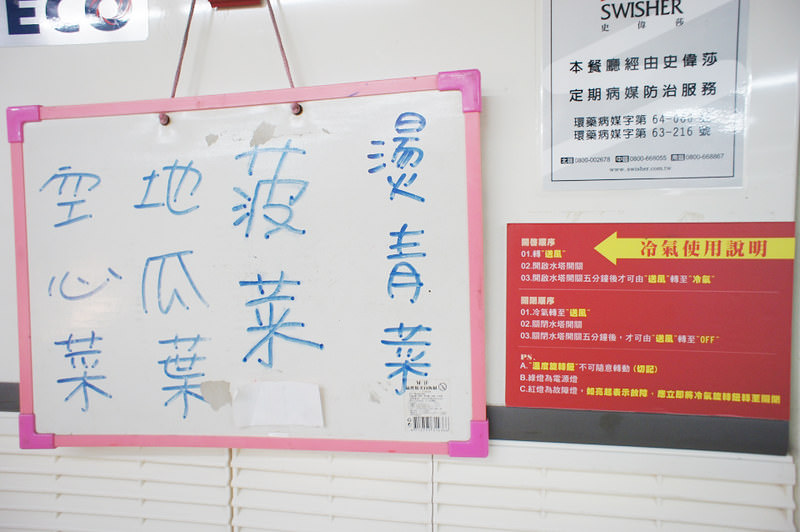 ECO
燙青菜
菠菜
地瓜葉
空心菜
SWISHER
史偉莎
本餐廳經由史偉莎
定期病媒防治服務
環藥病媒字第 64-
環藥病媒字第 63-216 號
北區 0800-002678 中區 0800-669055 南區 0800-668867
www.swisher.com.tw
冷氣使用說明
開啓順序
01.轉"送風"
02.開啟水塔開關
03.開啟水塔開關五分鐘後才可由"送風"轉至"冷氣"
關閉順序
01.冷氣轉至"送風"
02.關閉水塔開關
03.關閉水塔開關五分鐘後，才可由"送風"轉至"OFF"
PS.
A."溫度旋轉鈕"不可隨意轉動(切記)
B.綠燈為電源燈
C.紅燈為故障燈，如亮起表示故障，應立即將冷氣旋轉鈕轉至關閉